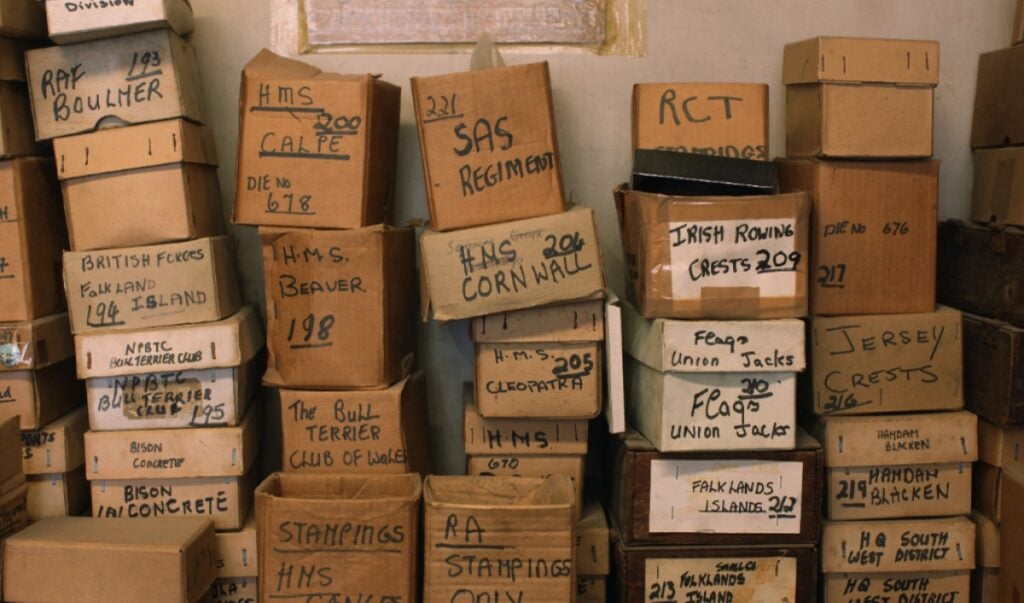 Division
RAF 193
BOULMER
BRITISH FORCES
FALKLAND
194 ISLAND
NPBTC
BULL TERRIER CLUB
NPBTC
BULL TERRIER
CLUB 195
BISON
CONCRETE
BISON
CONCRETE
HMS
200
CALPE
DIE NO
678
H.M.S.
BEAVER
198
THE BULL
TERRIER
CLUB OF WALES
STAMPINGS
HMS
221
SAS
REGIMENT
HMS 204
CORNWALL
H.M.S. 205
CLEOPATRA
H.M.S.
RA
STAMPINGS
ONLY
RCT
STAMPINGS
IRISH ROWING
CRESTS 209
Flags
UNION JACKS
210
FLAGS
UNION JACKS
FALKLANDS
ISLANDS 212
213 FALKLANDS
ISLANDS
DIE NO 676
217
JERSEY
CRESTS
216
HAMDAM
BLACKEN
HAMDAN
219 BLACKEN
HQ SOUTH
WEST DISTRICT
HQ SOUTH
WEST DISTRICT